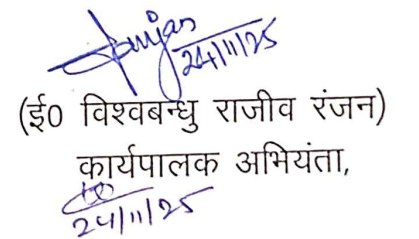 Ranjan
24/11/25
(ई0 विश्वबन्धु राजीव रंजन)
कार्यपालक अभियंता,
24/11/25